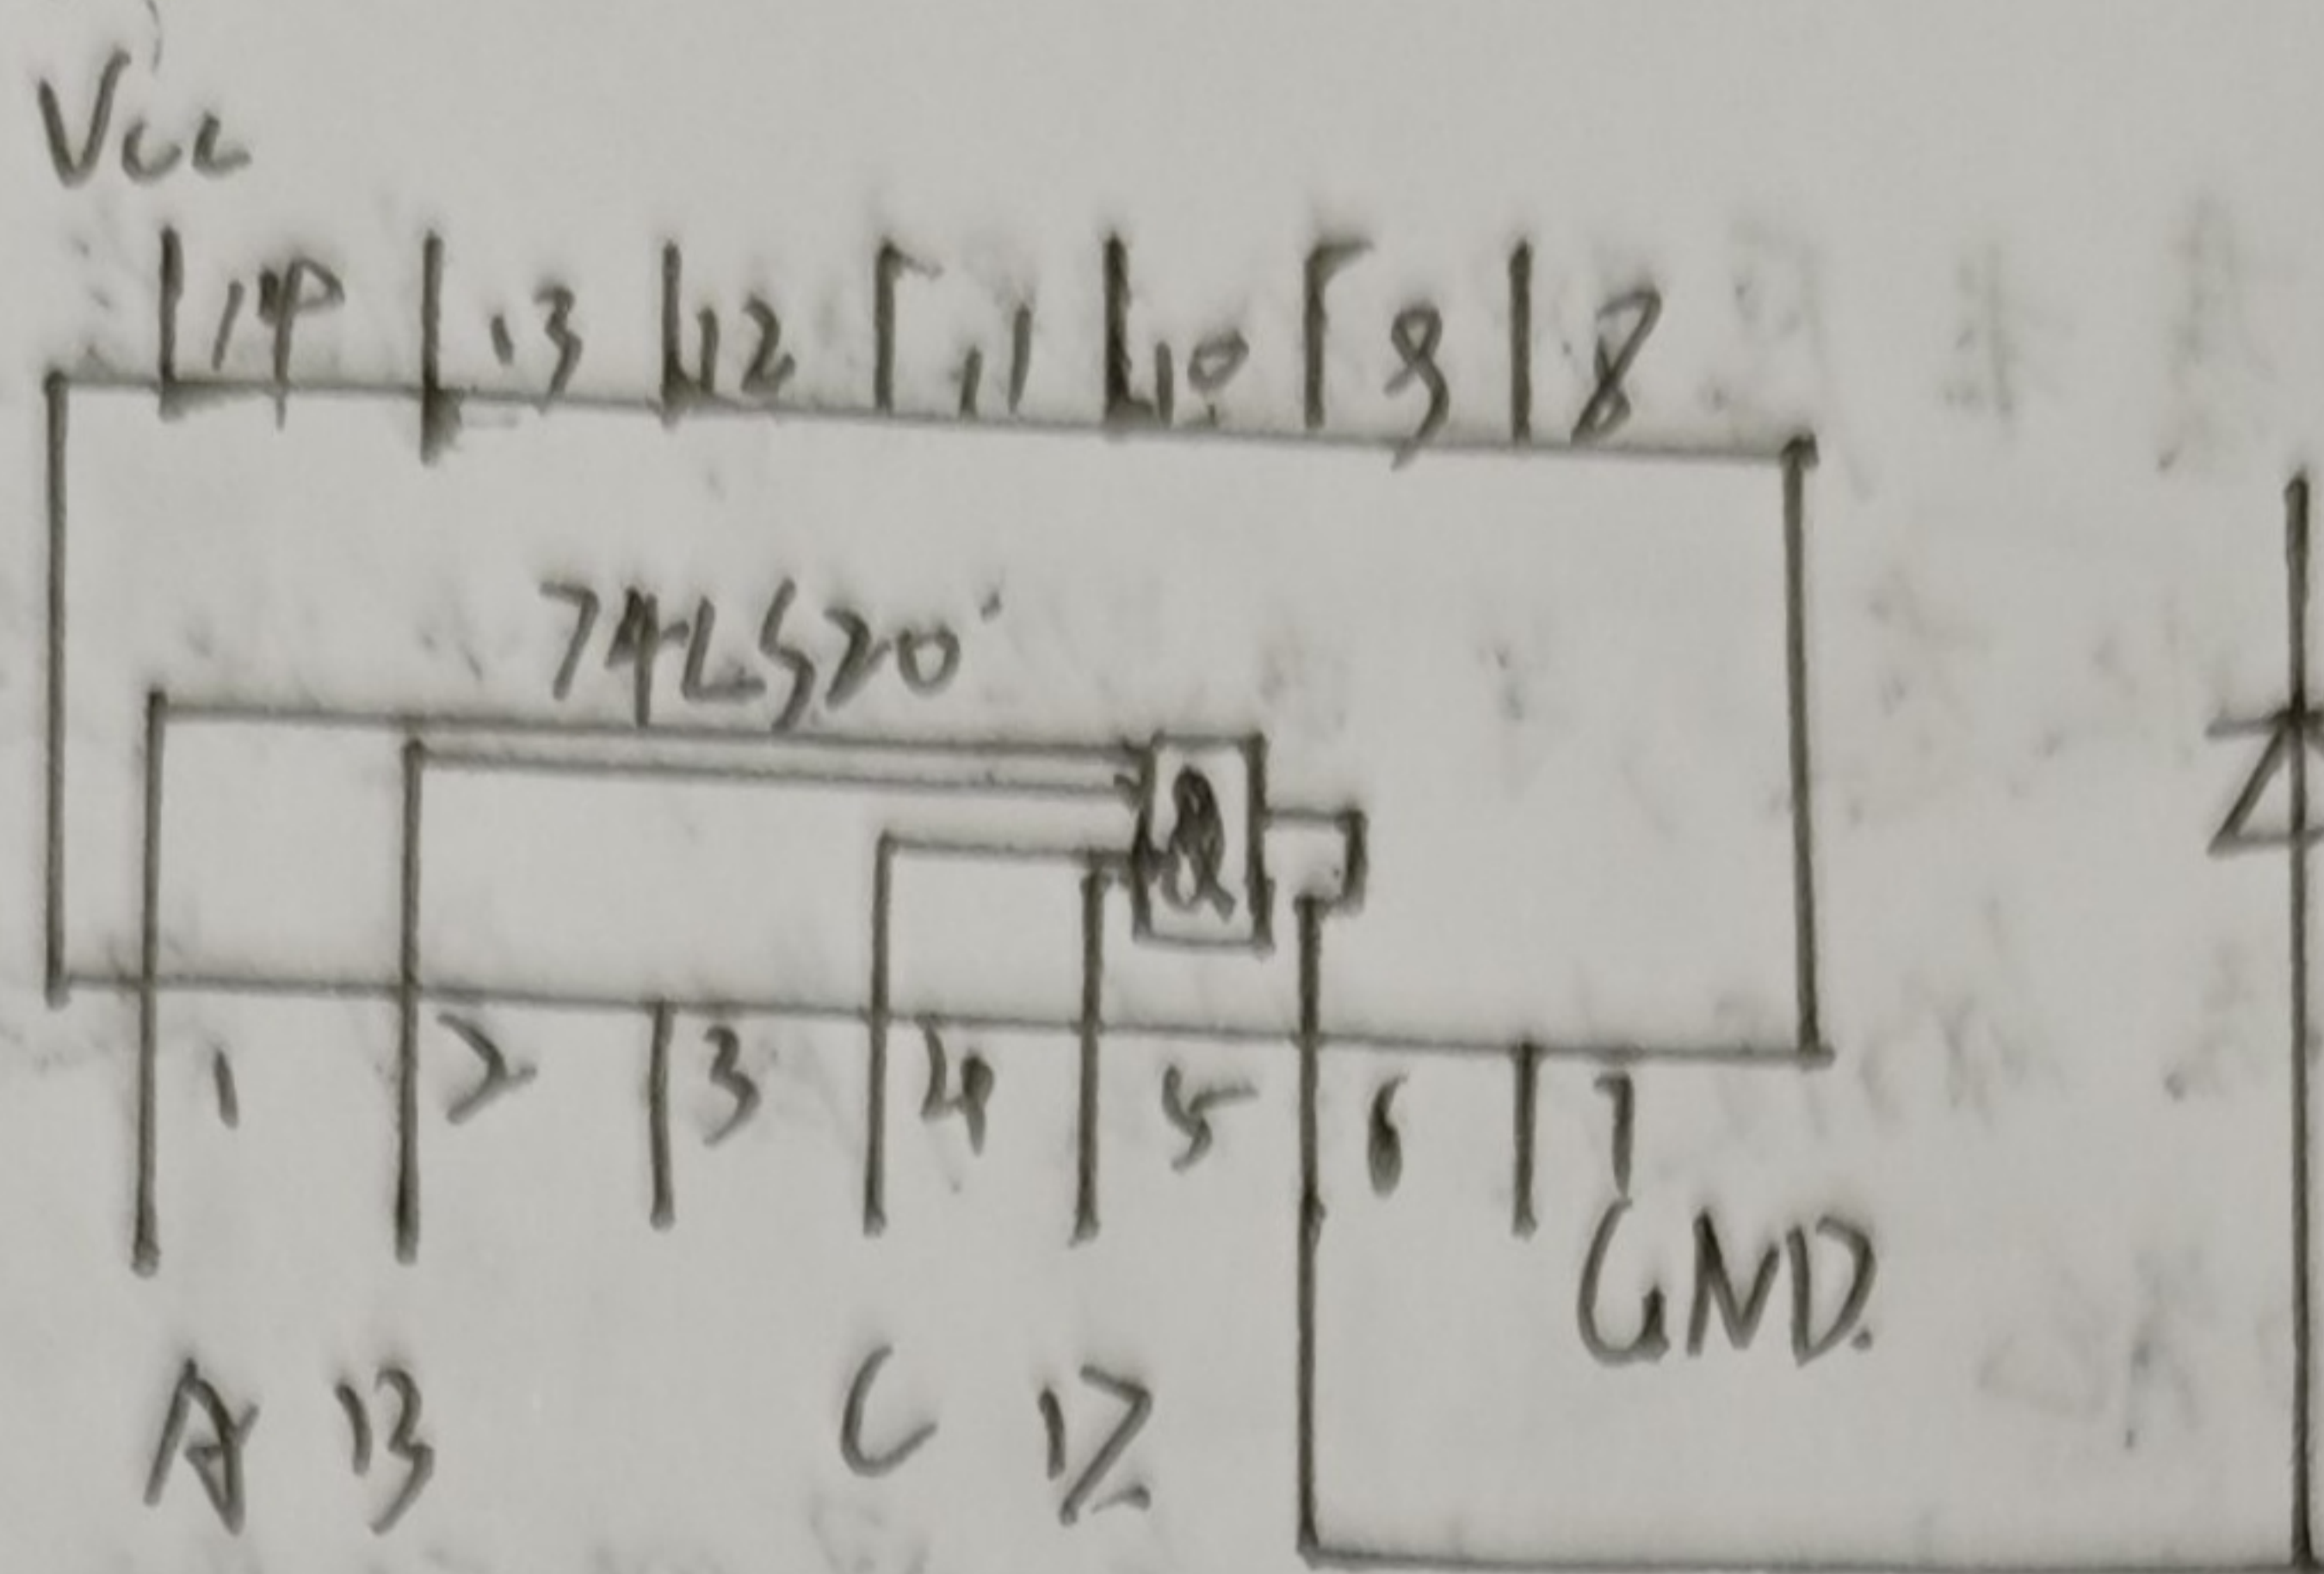 Vcc
14 13 12 11 10 9 8
74LS20
&
1 2 3 4 5 6 7
GND
A B C 12